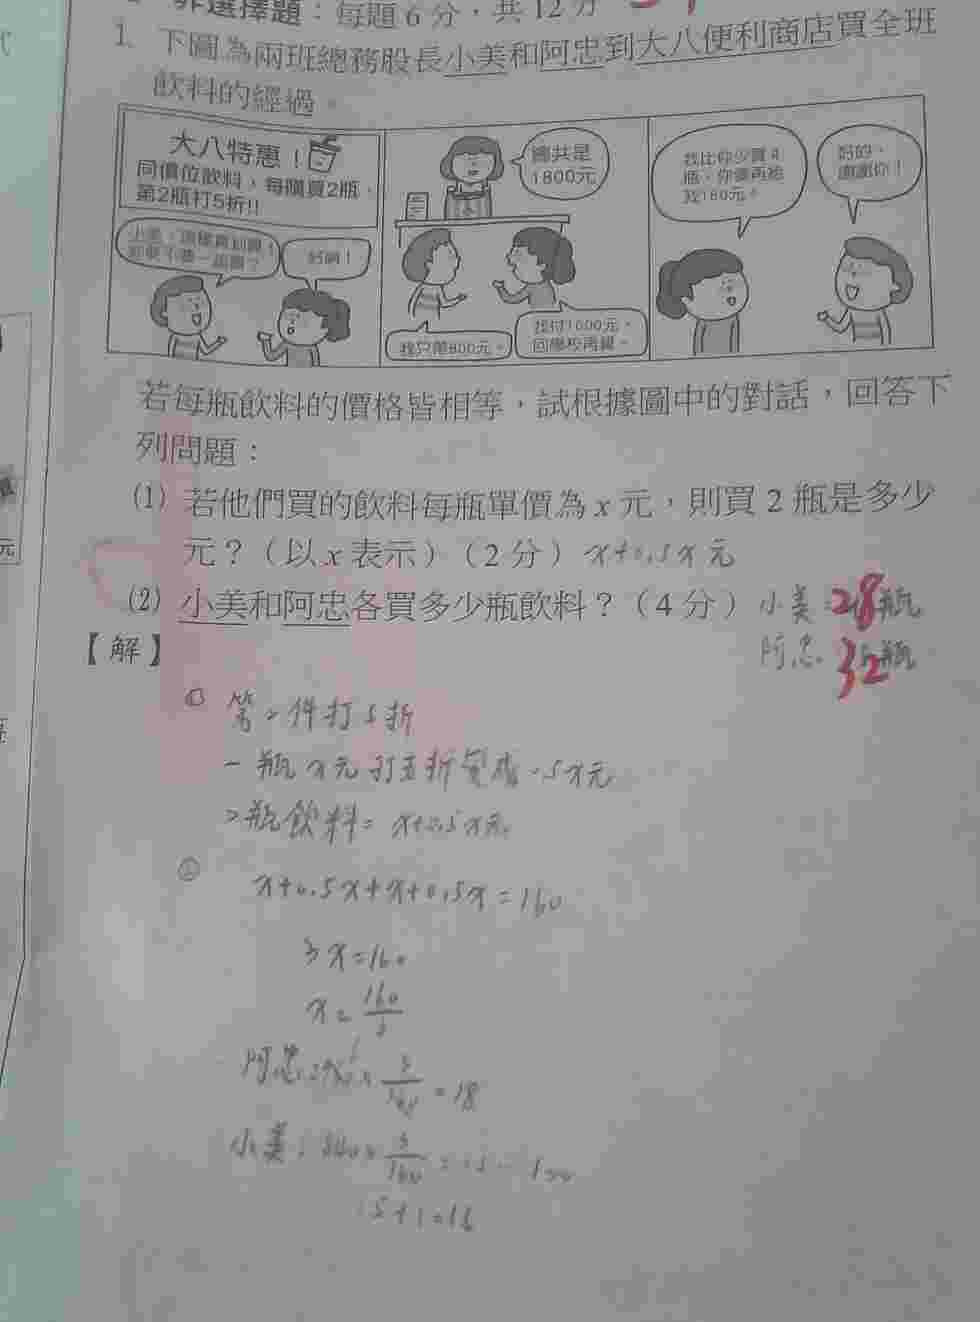 非選擇題：每題 6 分，共 12 分
1. 下圖為兩班總務股長小美和阿忠到大八便利商店買全班
飲料的經過。
大八特惠！
同價位飲料，每購買2瓶，
第2瓶打5折!!
好啊！
總共是
1800元
我只帶800元。
我付1000元，
回學校再算。
我比你少買4
瓶，你要再給
我160元。
好的，
謝謝你！
若每瓶飲料的價格皆相等，試根據圖中的對話，回答下
列問題：
(1) 若他們買的飲料每瓶單價為 x 元，則買 2 瓶是多少
元？（以 x 表示）（2 分） x+0.5x元
(2) 小美和阿忠各買多少瓶飲料？（4 分） 小美：28瓶
阿忠 32瓶
【解】
① 第二件打5折
一瓶x元 打五折 .5x元
2瓶飲料= x+0.5x元
②
x+0.5x+x+0.5x=160
3x=160
x=160/3
阿忠: =18
小美:
15+1=16